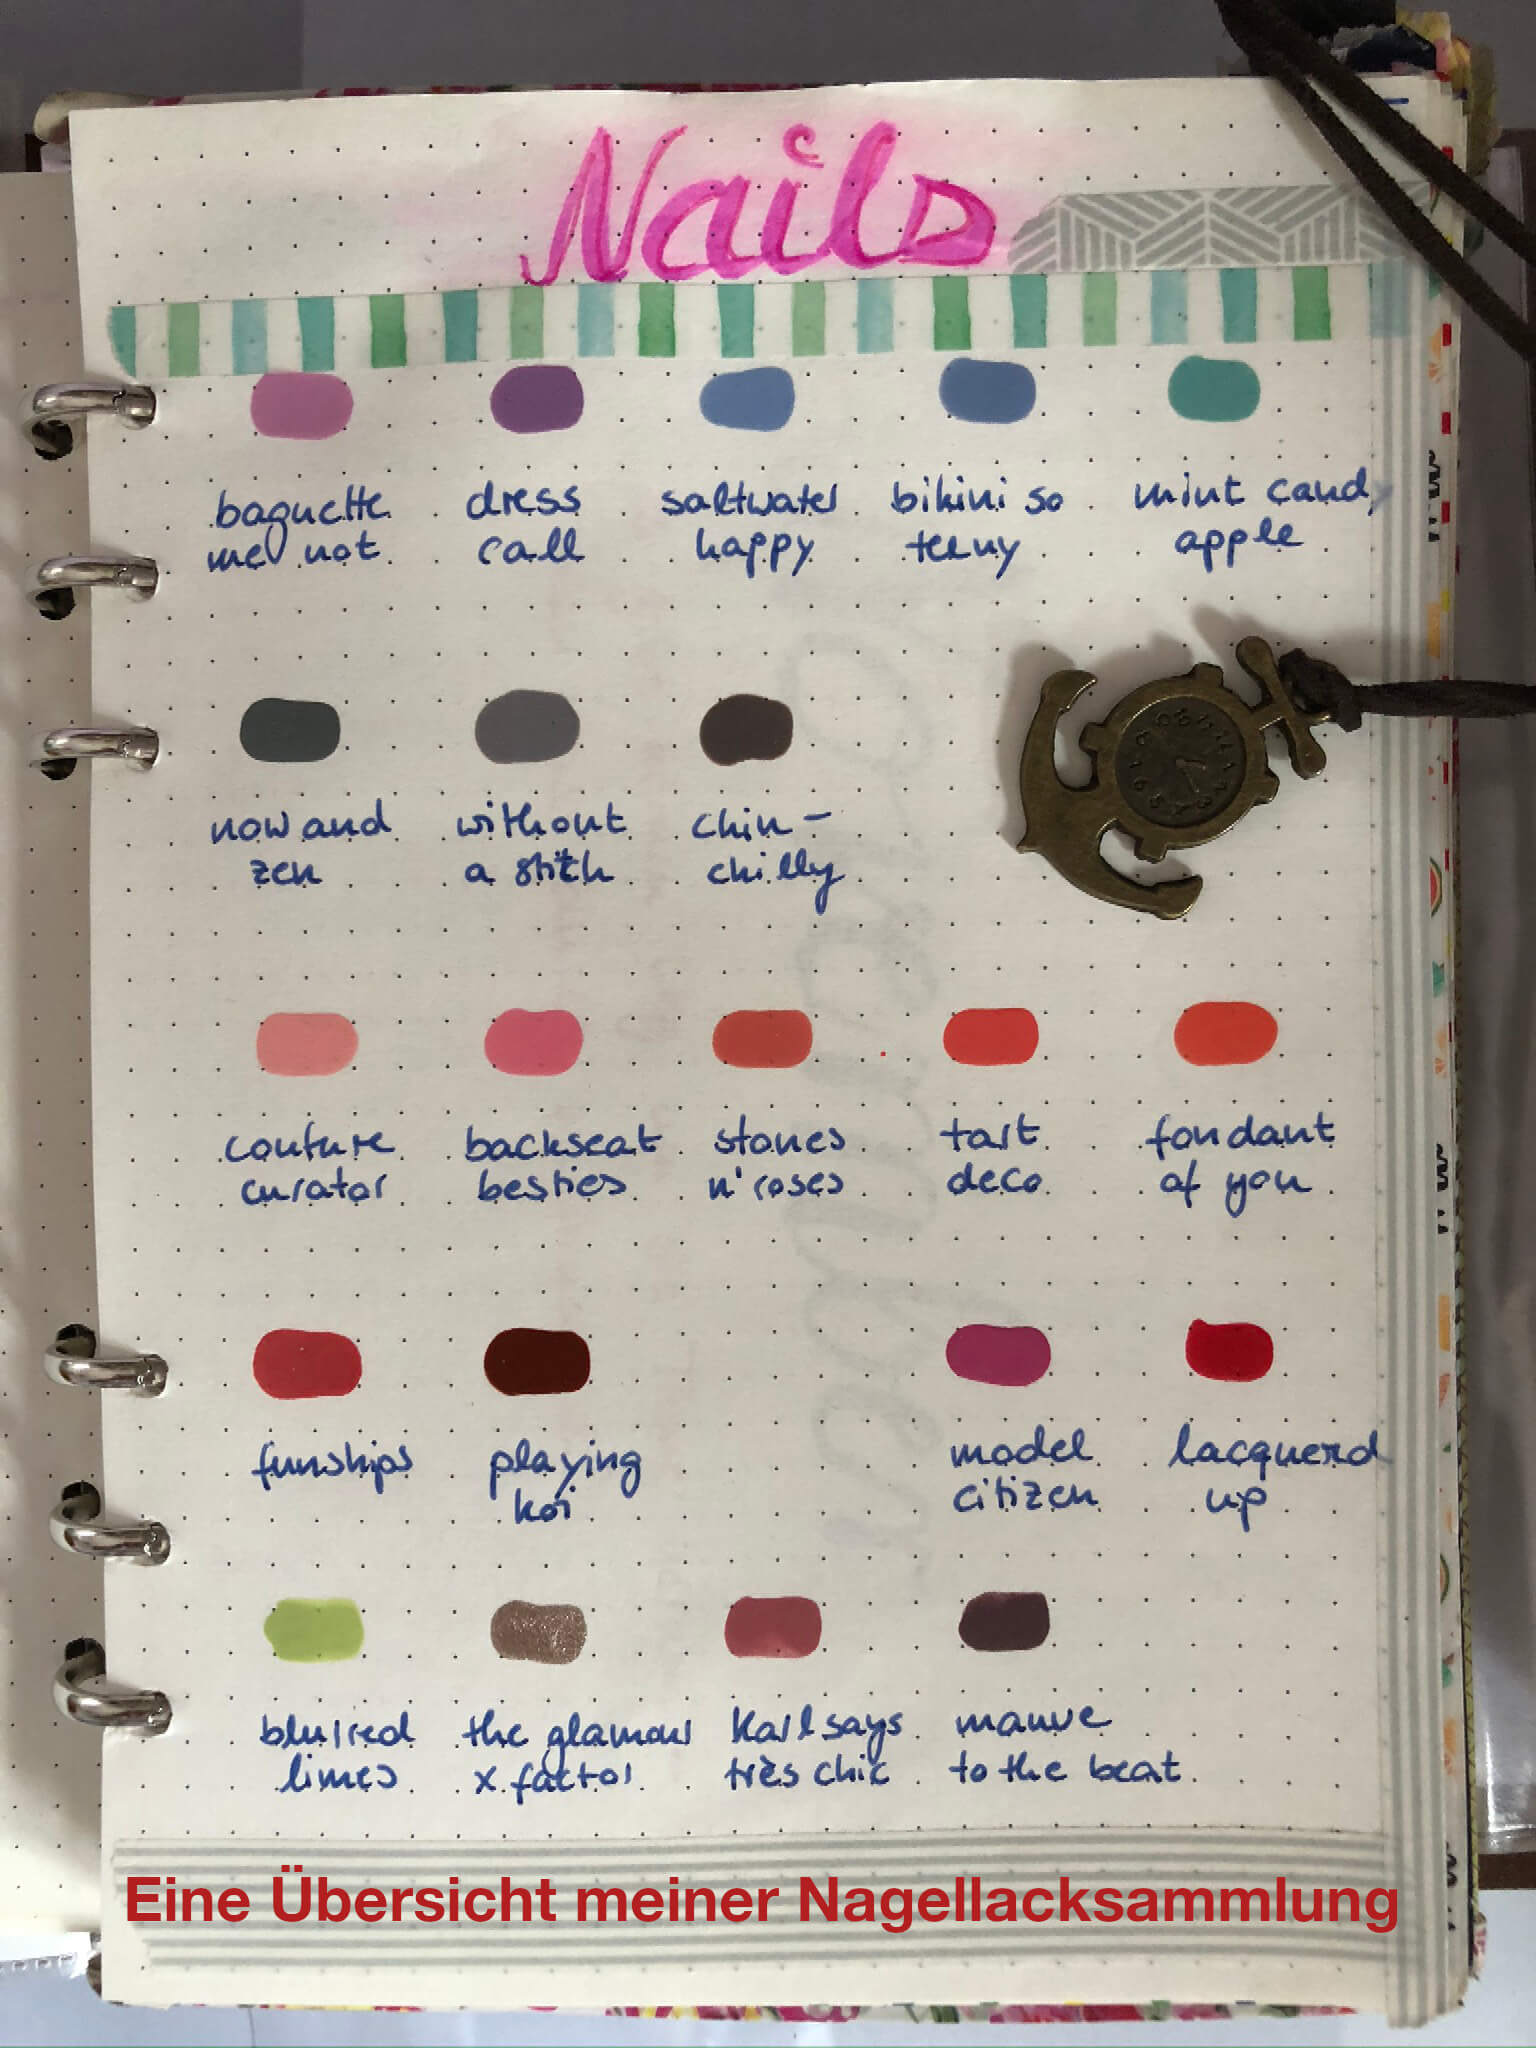 Nails
baguette
me not
dress
call
saltwater
happy
bikini so
teeny
mint candy
apple
now and
zen
without
a stitch
chin-
chilly
couture
curator
backseat
besties
stones
n' roses
tart
deco
fondant
of you
funships
playing
koi
model
citizen
lacquerd
up
blurred
limes
the glamour
x factor
Karl says
très chic
mauve
to the beat
Eine Übersicht meiner Nagellacksammlung